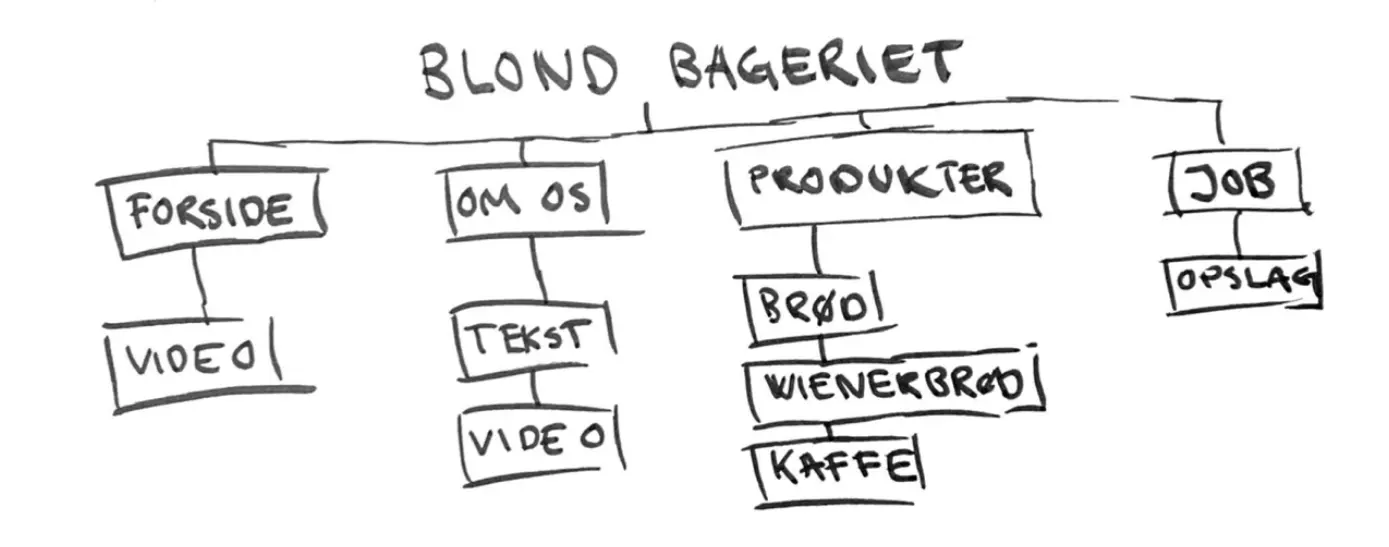 BLOND BAGERIET
FORSIDE
VIDEO
OM OS
TEKST
VIDEO
PRODUKTER
BRØD
WIENERBRØD
KAFFE
JOB
OPSLAG